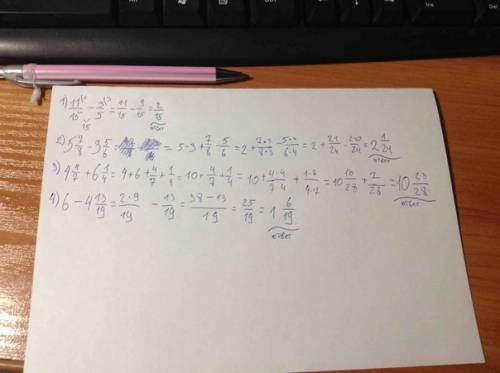 1) 11/15 - 3/5 = 11/15 - 9/15 = 2/15 ответ
2) 5 7/8 - 3 5/6 = 5 - 3 + 7/8 - 5/6 = 2 + 7·3/8·3 - 5·4/6·4 = 2 + 21/24 - 20/24 = 2 1/24 ответ
3) 4 4/7 + 6 1/4 = 4 + 6 + 4/7 + 1/4 = 10 + 4/7 + 1/4 = 10 + 4·4/7·4 + 1·7/4·7 = 10 16/28 + 7/28 = 10 23/28 ответ
4) 6 - 4 13/19 = 2·9/19 - 13/19 = 38-13/19 = 25/19 = 1 6/19 ответ